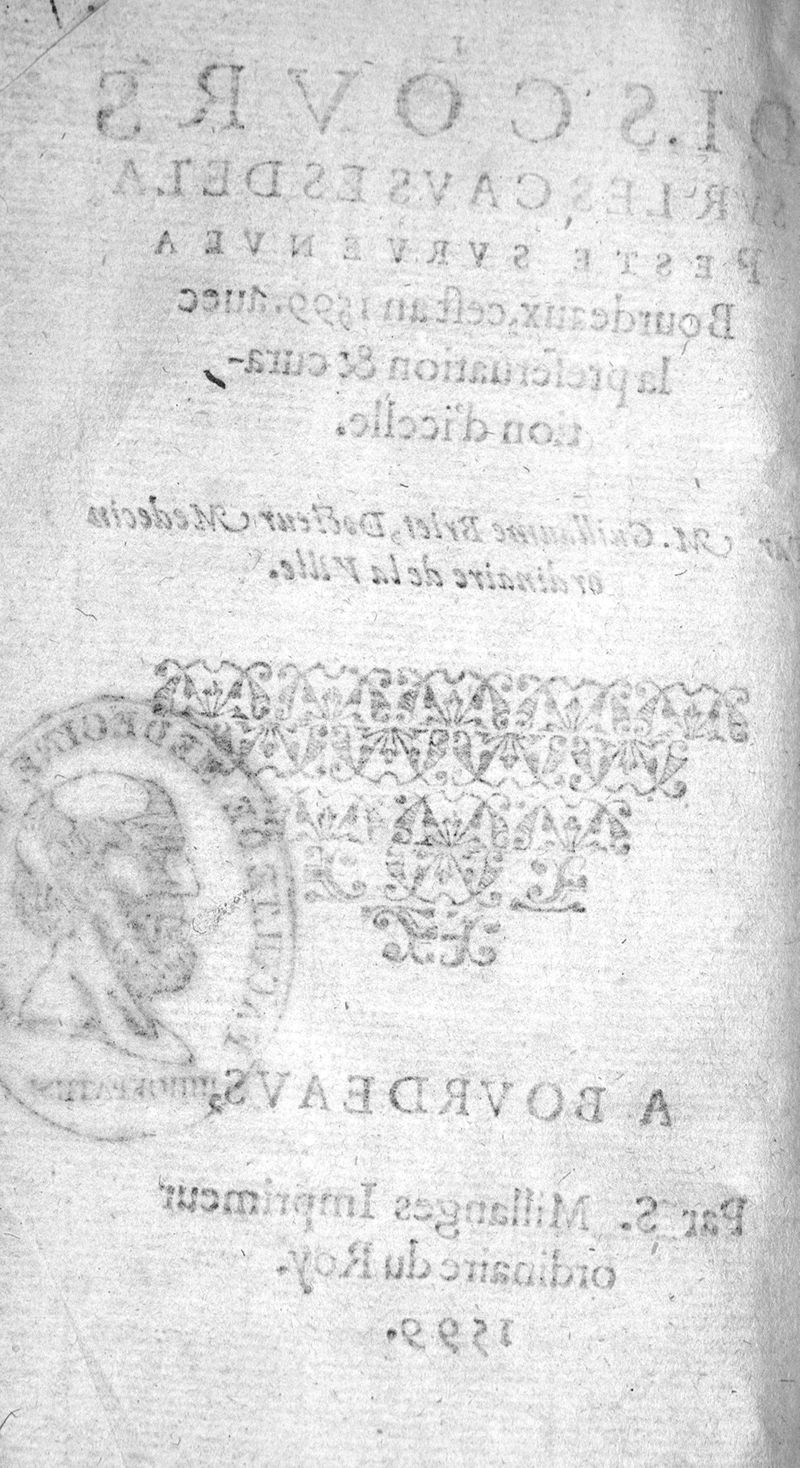 DISCOVRS
SVR LES CAVSES DE LA
PESTE SVRVENVE A
Bourdeaux, cest an 1599. auec
la preseruation & cura-
tion d'icelle.
Par M. Guillaume Briet, Docteur Medecin
ordinaire de la Ville.
A BOVRDEAVS,
Par S. Millanges Imprimeur
ordinaire du Roy.
1599.
FACULTE DE MEDECINE